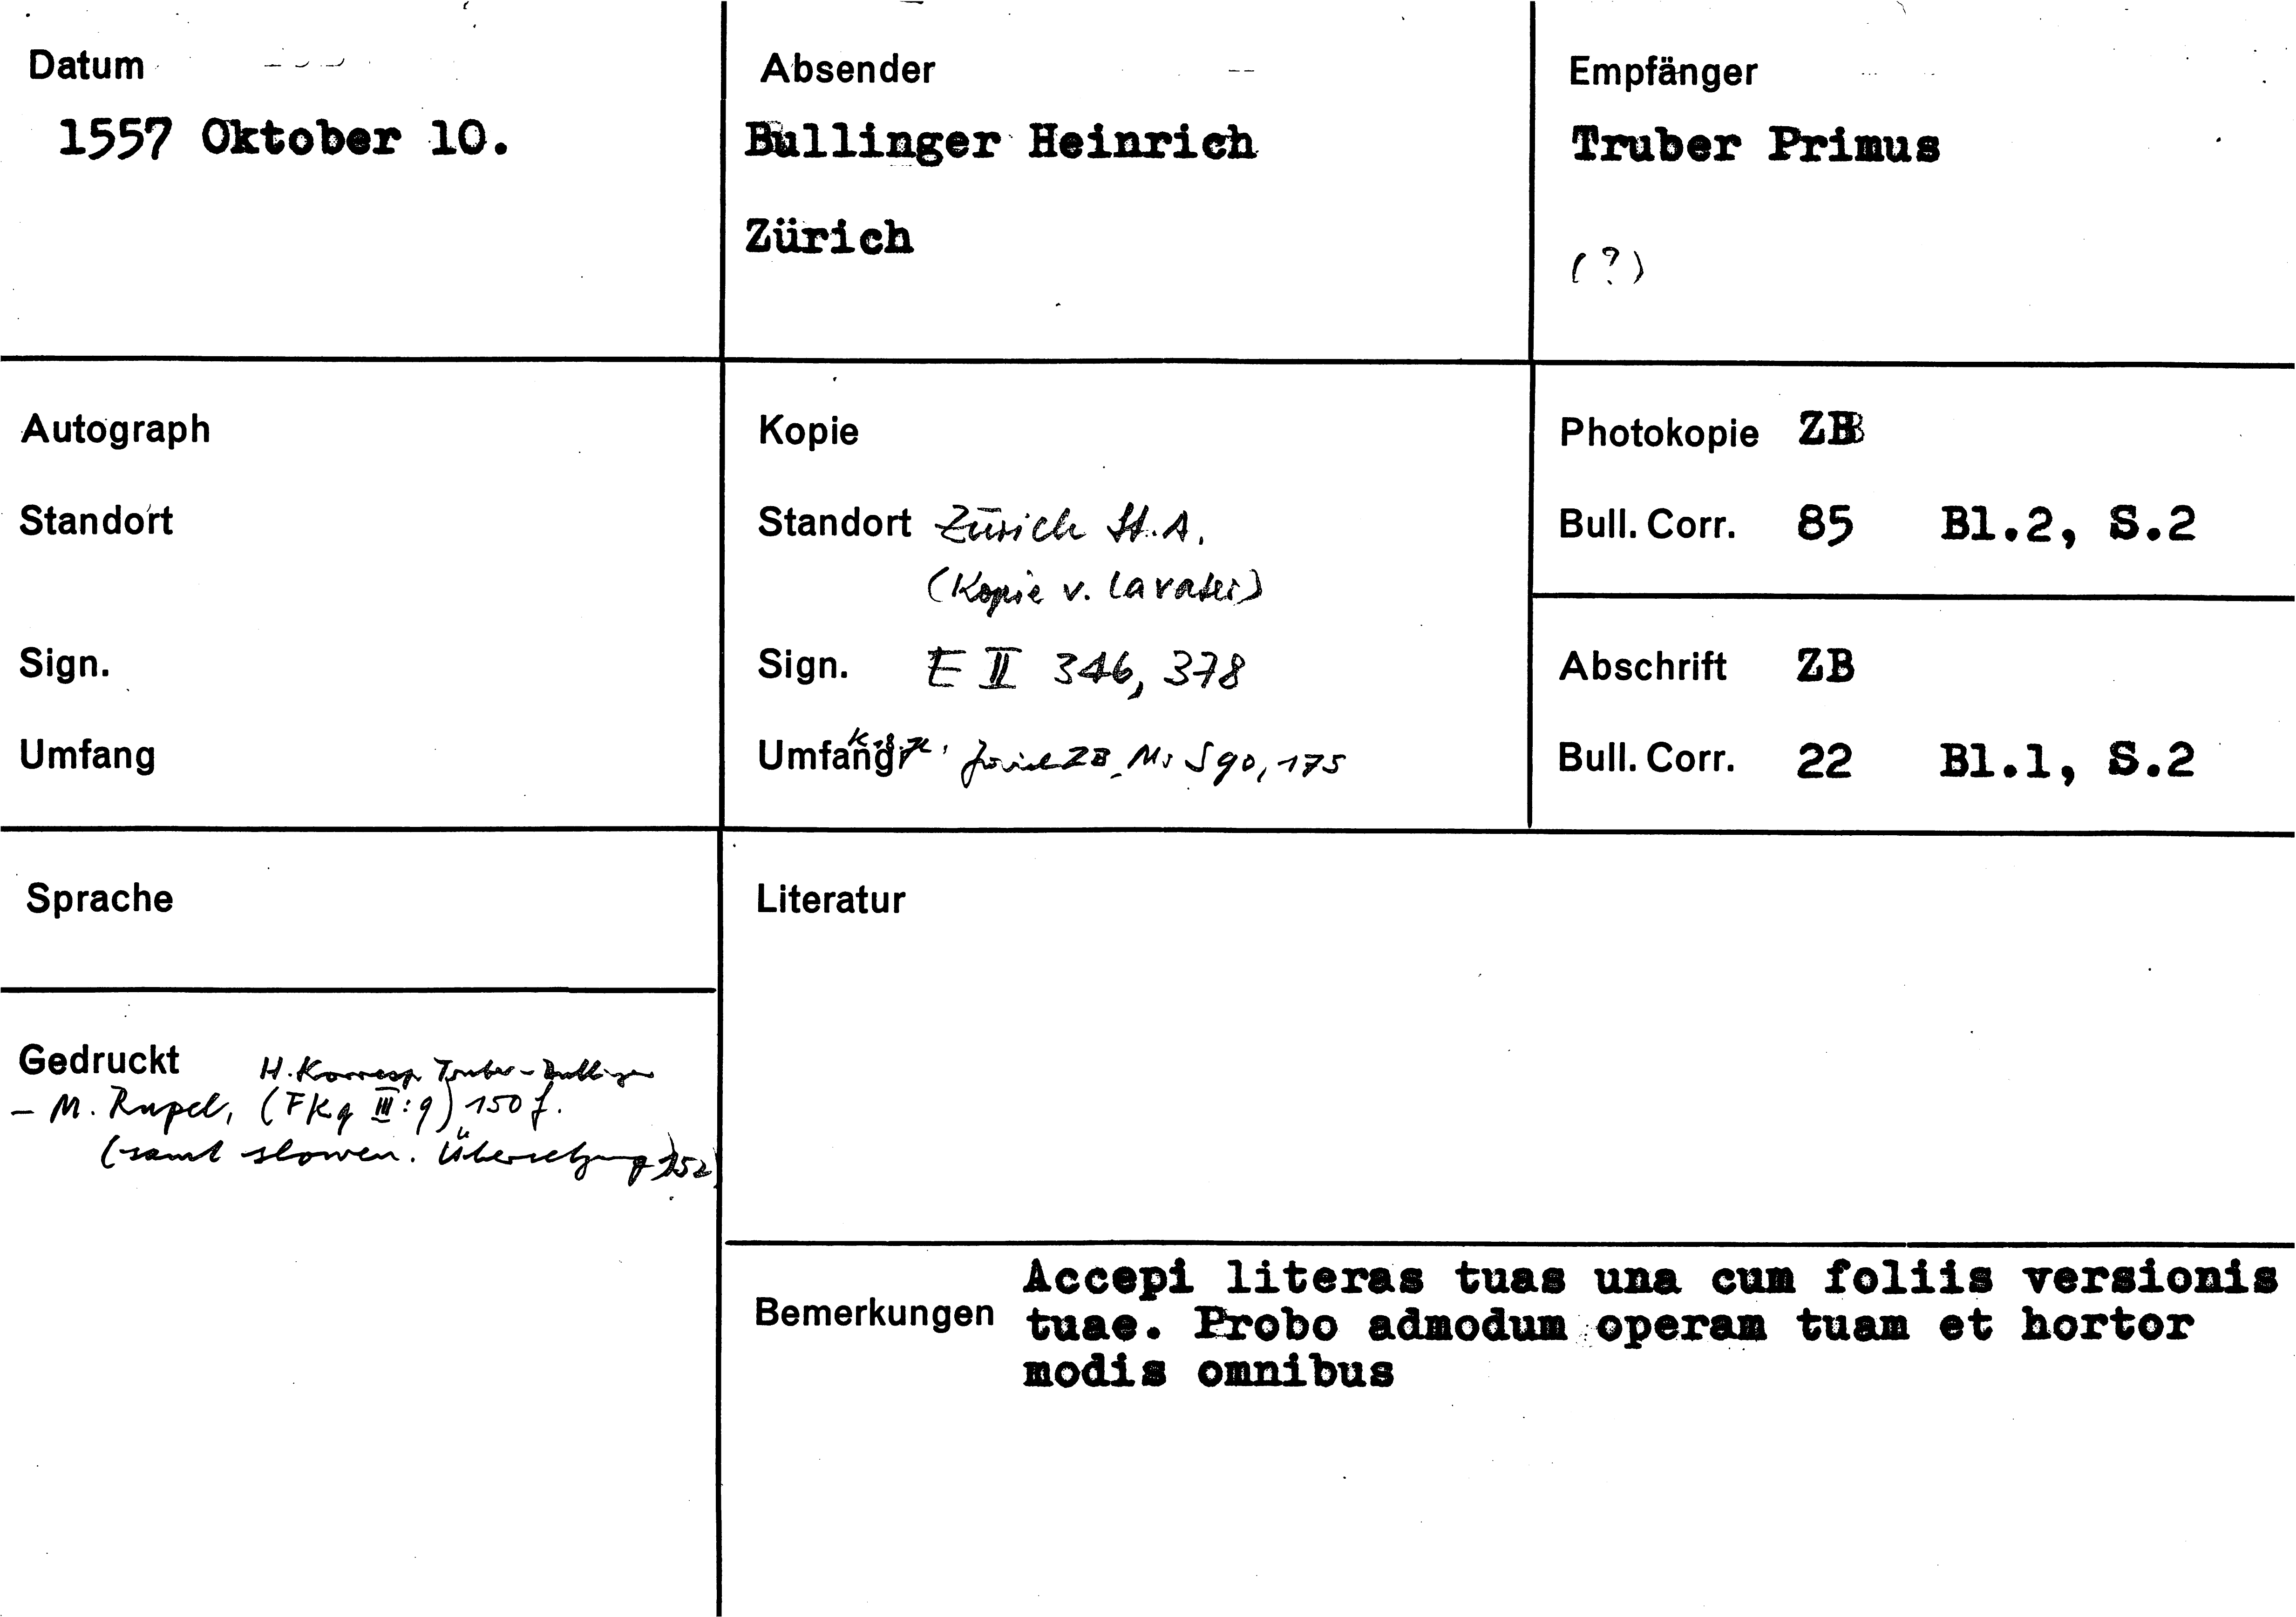 Datum
1557 Oktober 10.
Absender
Bullinger Heinrich
Zürich
Empfänger
Truber Primus
(?)
Autograph
Standort
Sign.
Umfang
Kopie
Standort Zürich St.A.
(Kopie v. Lavater)
Sign. E II 346, 378
Umfang ZB, Ms S 90, 175
Photokopie ZB
Bull. Corr. 85 Bl.2, S.2
Abschrift ZB
Bull. Corr. 22 Bl.1, S.2
Sprache
Gedruckt H. Korresp. Truber-Bullinger
- M. Rupel, (FKg III:9) 150 f.
(samt slowen. Übersetzung 152)
Literatur
Bemerkungen
Accepi literas tuas una cum foliis versionis
tuae. Probo admodum operam tuam et hortor
modis omnibus